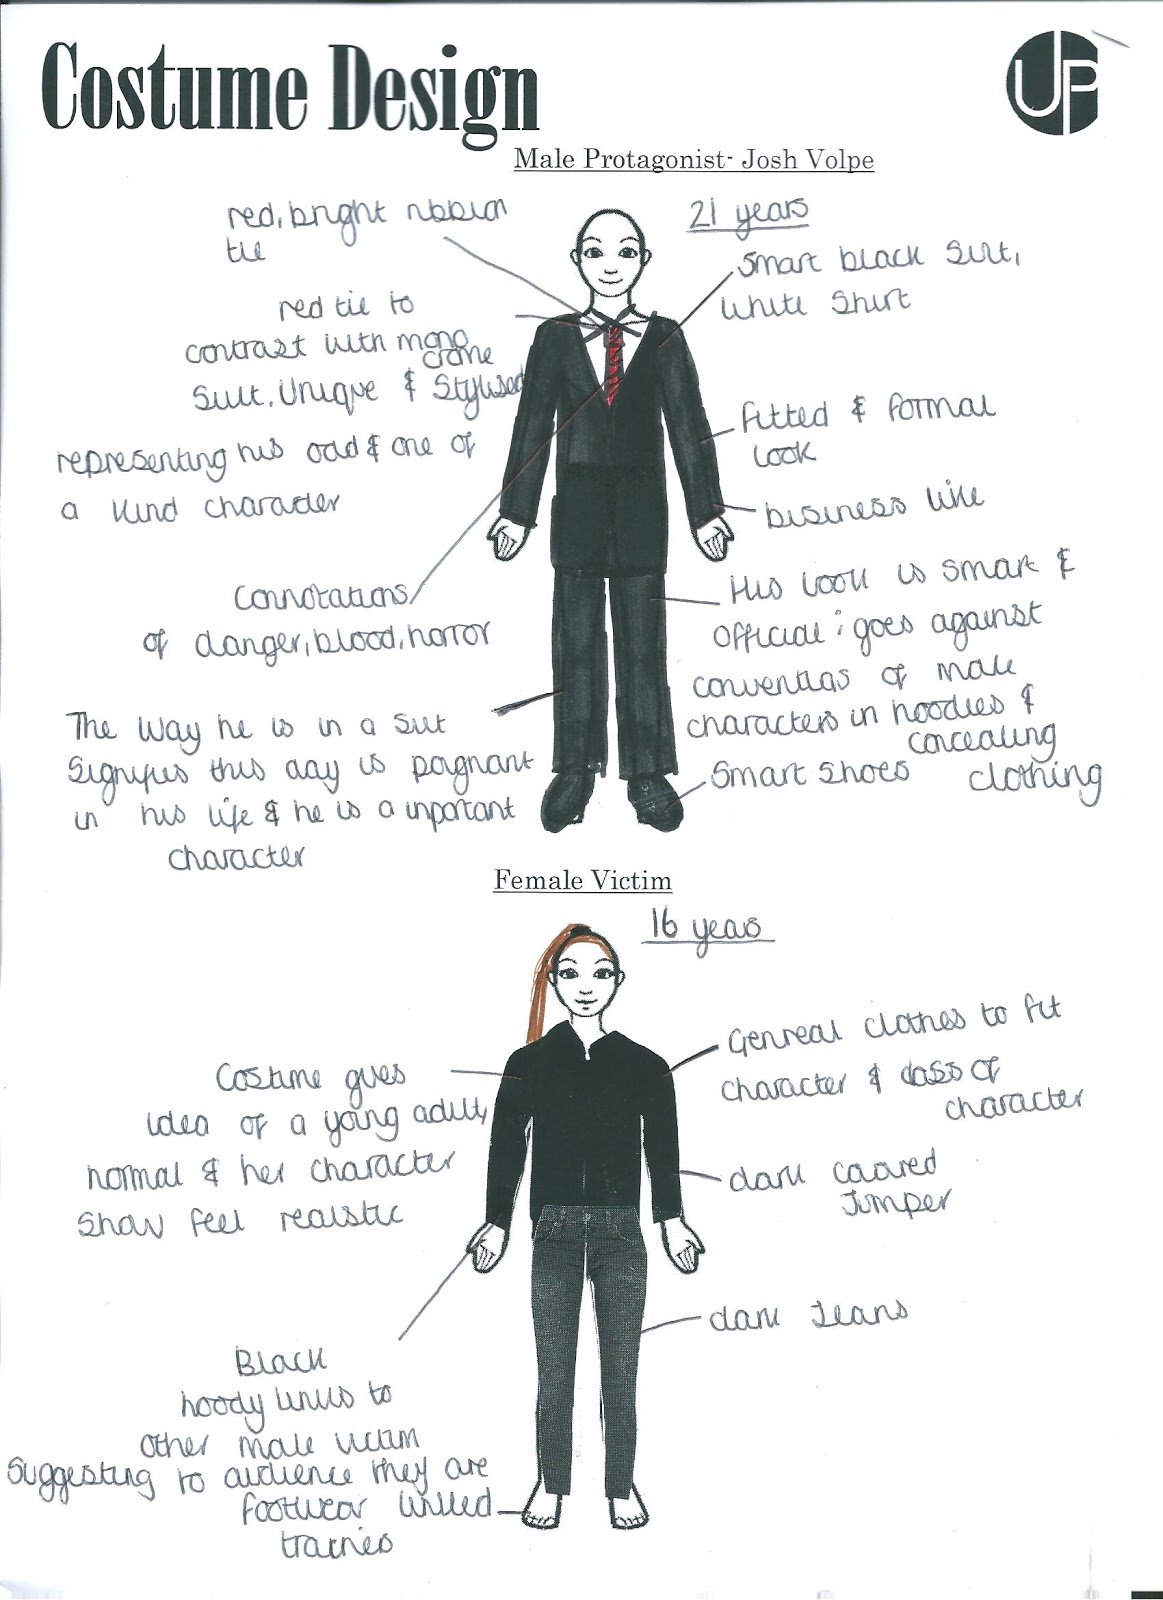 Costume Design
UP
Male Protagonist- Josh Volpe
red, bright ribbion
tie
21 years
Smart black Suit,
White Shirt
red tie to
contrast with mono
crome
Suit. Unique & Stylised
representing his odd & one of
a kind character
Fitted & formal
look
business like
Connotations
of danger, blood, horror
His look is smart &
official ; goes against
conventias of male
characters in hoodies &
concealing
clothing
The way he is in a suit
Signifies this day is pognant
in his life & he is a inportant
character
Smart Shoes
Female Victim
16 years
Costume gives
idea of a young adult,
normal & her character
Show feel realistic
Genreal clothes to fit
character & class of
character
dark coored
Jumper
dark Jeans
Black
hoody links to
other male victim
Suggesting to audience they are
linked
footwear
trainers